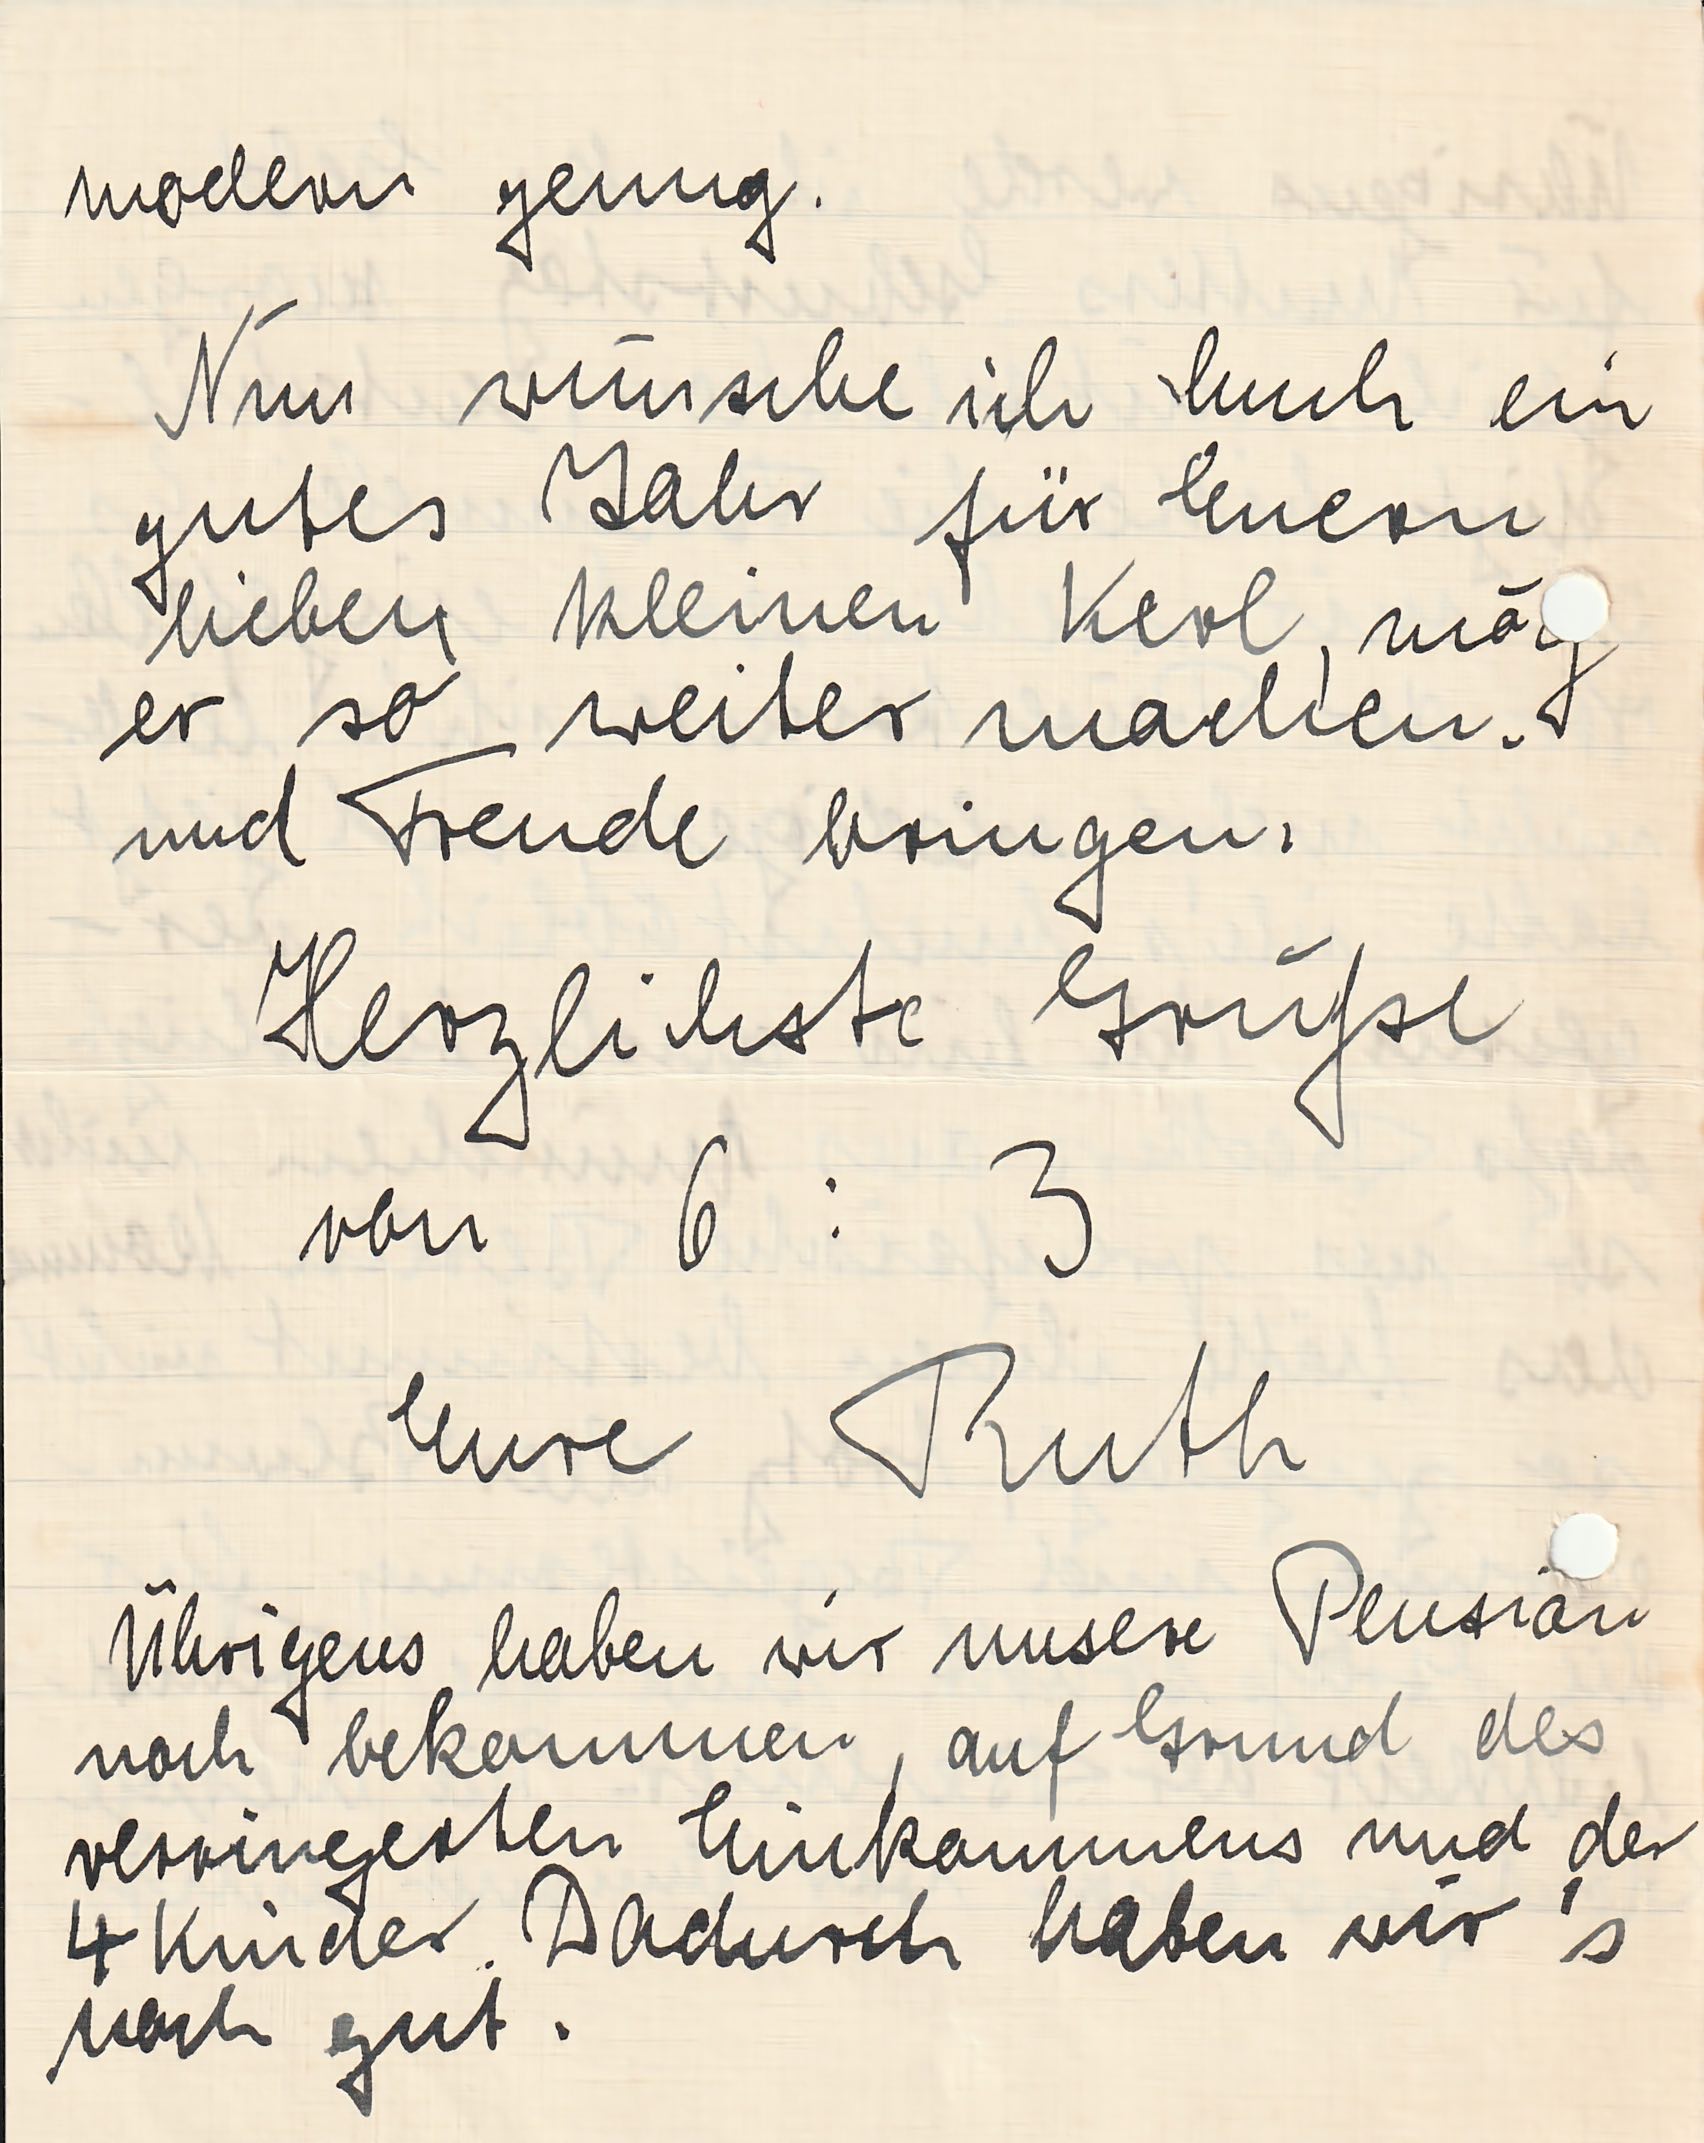 modern genug.
Nun wünsche ich Euch ein
gutes Jahr für Euern
lieben kleinen Kerl, mög
er so weiter machen.
und Freude bringen.
Herzlichste Grüße
von 6 : 3
Eure Ruth
Übrigens haben wir unsere Pension
noch bekommen, auf Grund des
verringerten Einkommens und der
4 Kinder. Dadurch haben wir's
noch gut.